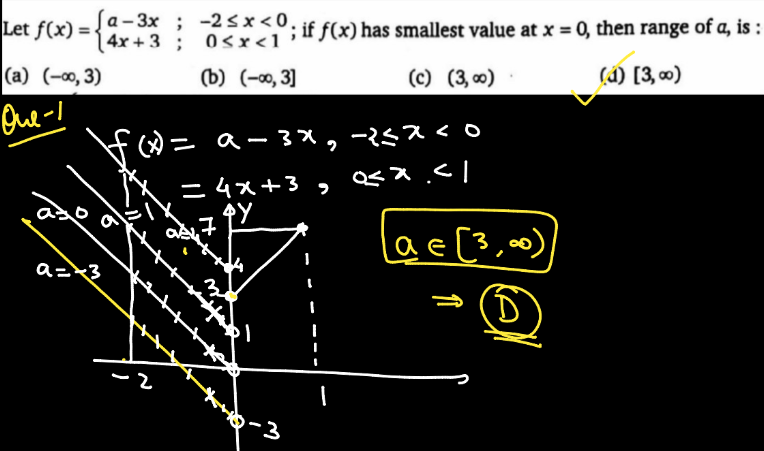 Let f(x) = { a – 3x ; –2 ≤ x < 0
4x + 3 ; 0 ≤ x < 1 ; if f(x) has smallest value at x = 0, then range of a, is :
(a) (–∞, 3) (b) (–∞, 3] (c) (3, ∞) (d) [3, ∞)
Que-1
f(x) = a – 3x, –2 ≤ x < 0
= 4x + 3, 0 ≤ x < 1
a=0 a=1 a=4 7 Y
a ∈ [3, ∞)
a=-3 4
3
⇒ D
1
-2 1
-3